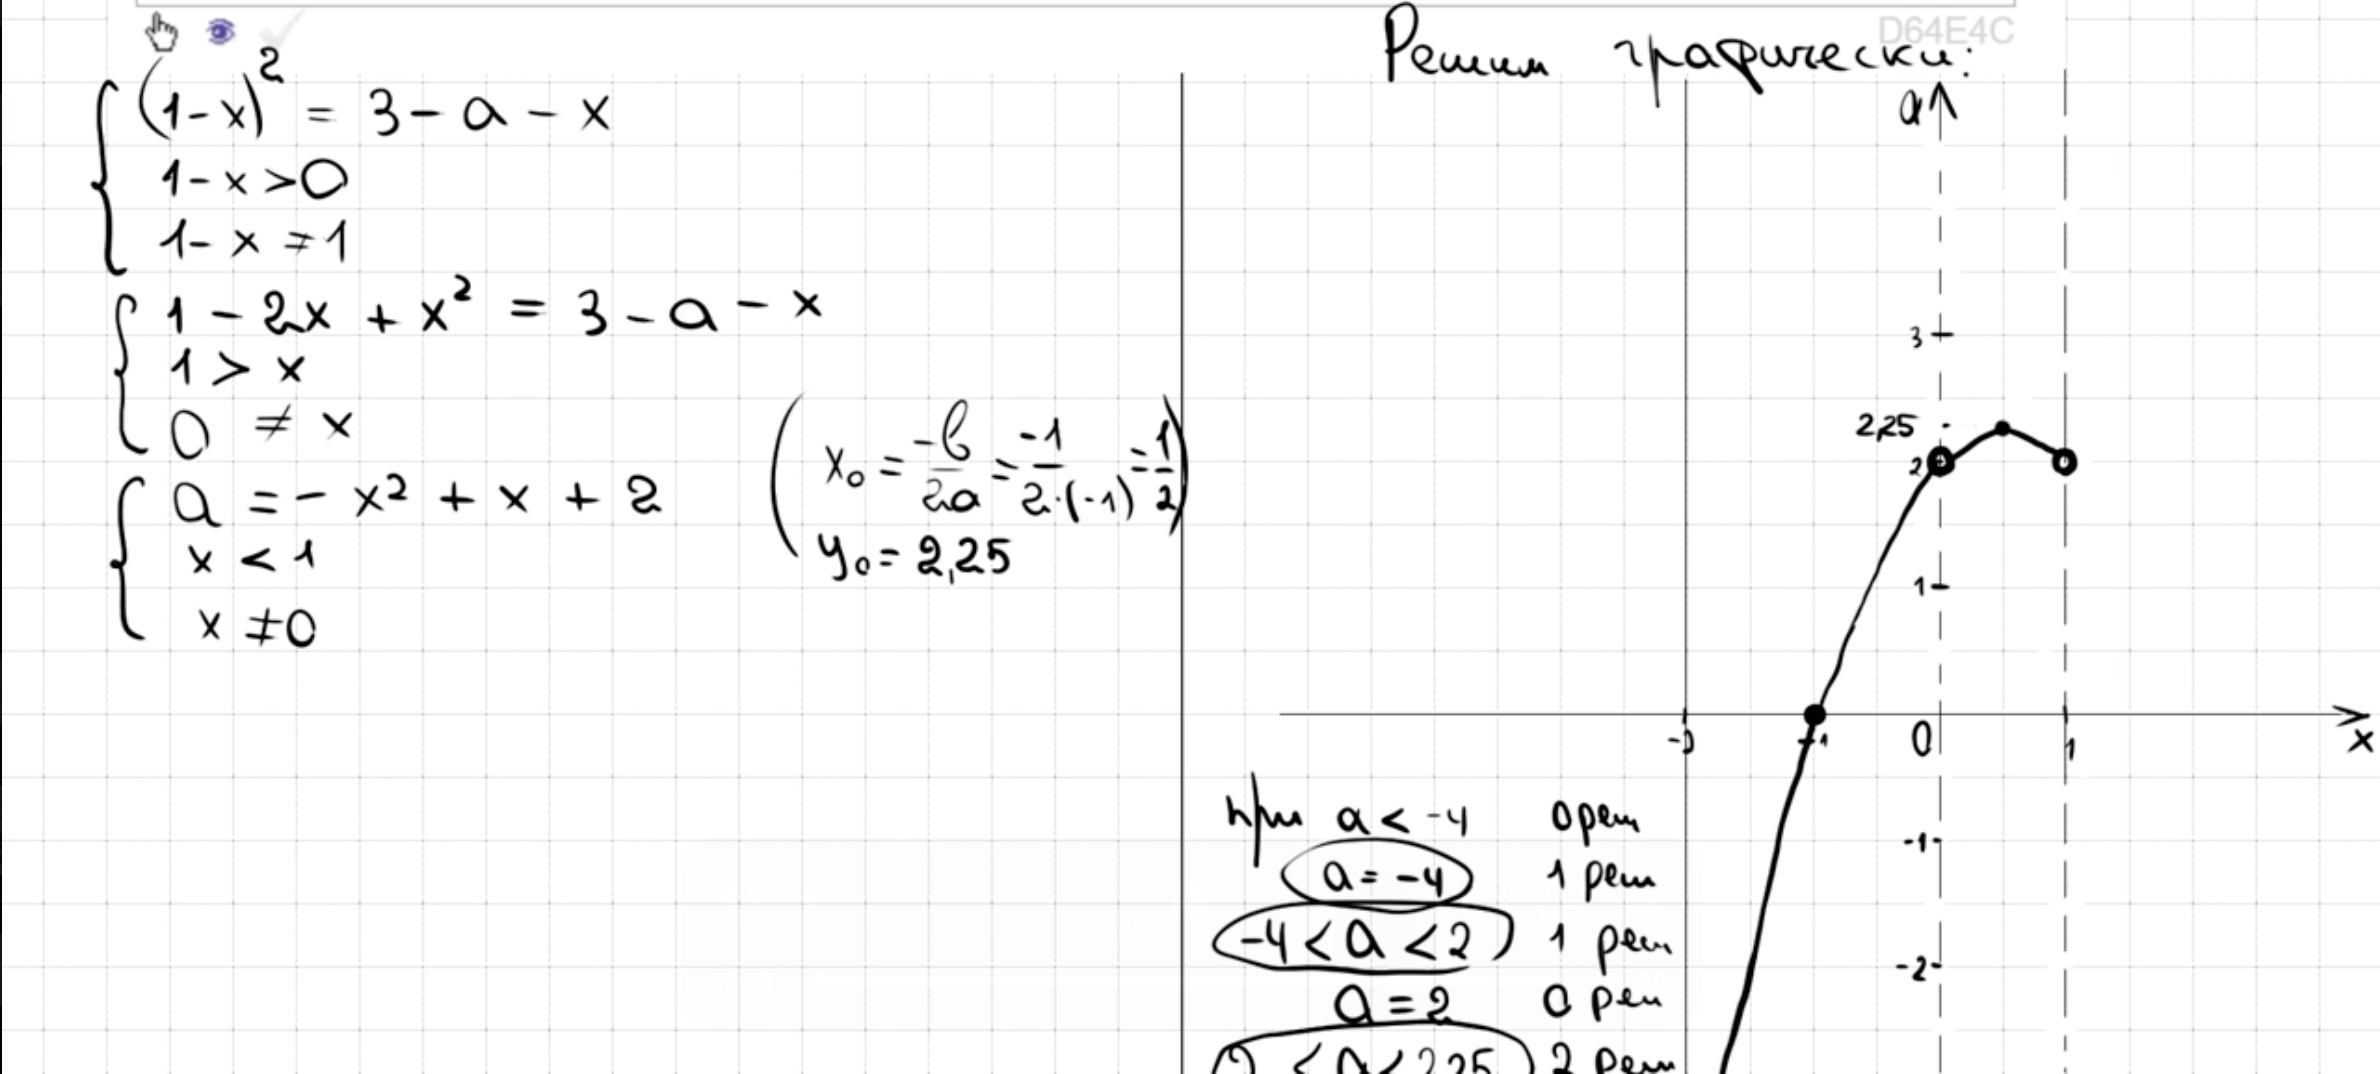 D64E4C
(1-x)² = 3 - a - x
1 - x > 0
1 - x ≠ 1
1 - 2x + x² = 3 - a - x
1 > x
0 ≠ x
a = - x² + x + 2
x < 1
x ≠ 0
x₀ = -b/2a = -1/2·(-1) = 1/2
y₀ = 2,25
Решим графически:
a
3
2,25
2
1
-1 0 1 x
-1
-2
при a < -4 0 реш
a = -4 1 реш
-4 < a < 2 1 реш
a = 2 0 реш
2 < a < 2,25 2 реш